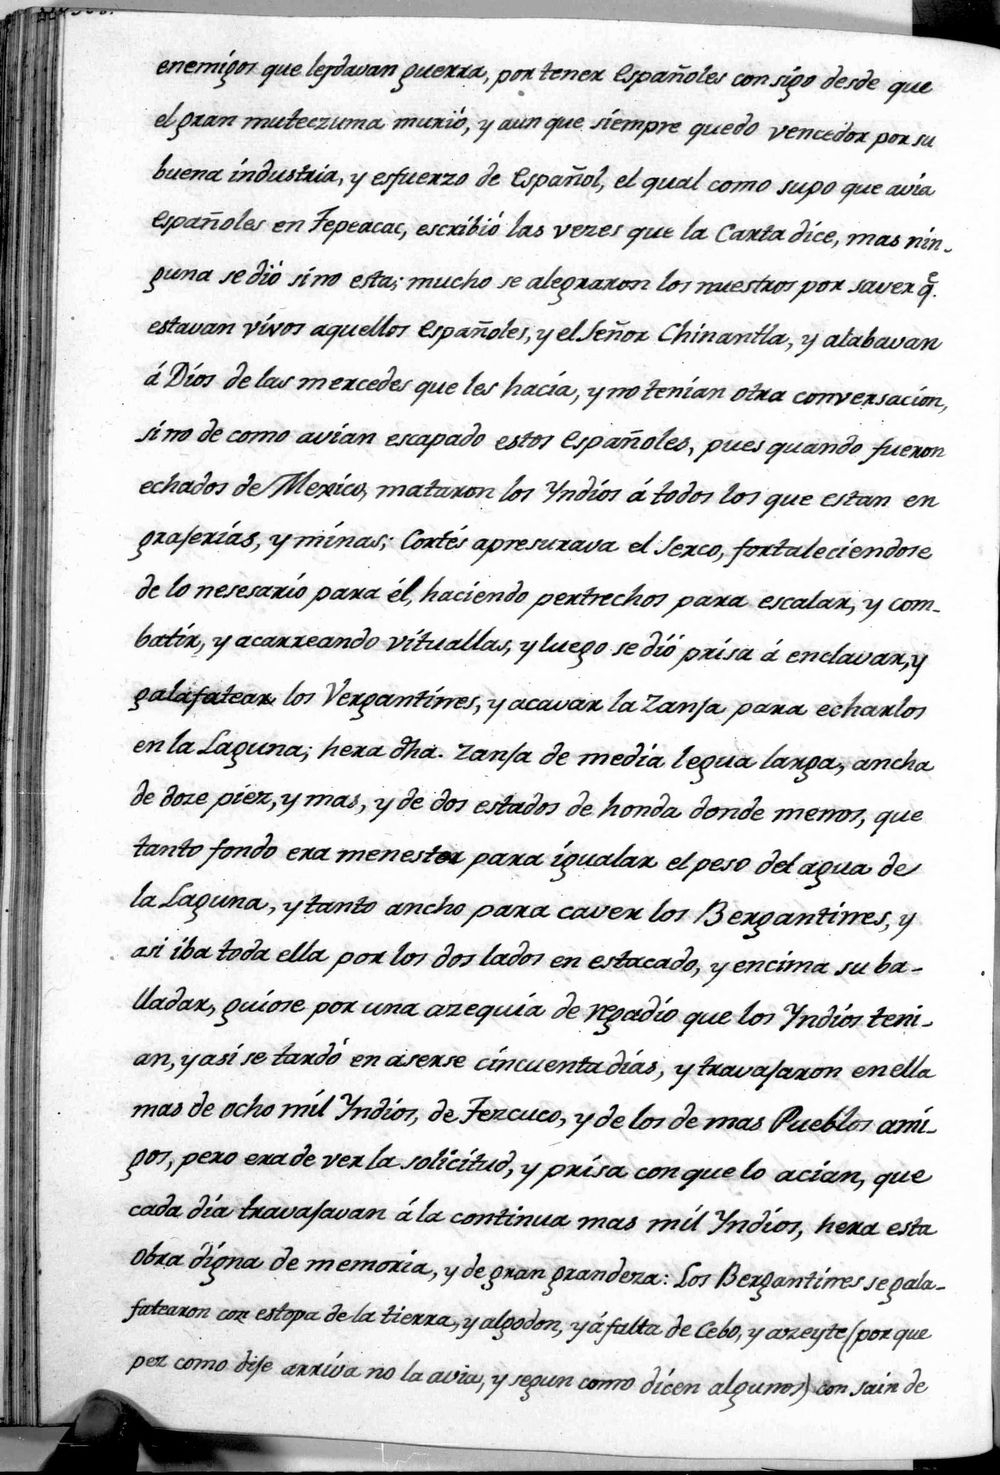 enemigos que lesdavan guerra, por tener Españoles consigo desde que
el gran muteczuma murió, y aun que siempre quedo vencedor por su
buena industria, y esfuerzo de Español, el qual como supo que avia
Españoles en Tepeacac, escribió las vezes que la Carta dice, mas nin-
guna se dió sino esta; mucho se alegraron los nuestros por saver q̃.
estavan vivos aquellos Españoles, y el Señor Chinantla, y alabavan
á Dios de las mercedes que les hacia, y no tenian otra conversacion,
sino de como avian escapado estos Españoles, pues quando fueron
echados de Mexico, mataron los Yndios á todos los que estan en
grajerias, y minas; Cortés apresurava el Serco, fortaleciendose
de lo nesesario para él, haciendo pertrechos para escalar, y com-
batir, y acarreando vituallas, y luego se dió prisa á enclavar, y
galafatear los Vergantines, y acavar la Zanja para echarlos
en la Laguna; hera dha. Zanja de media legua larga, ancha
de doze piez, y mas, y de dos estados de honda donde menos, que
tanto fondo era menester para igualar el peso del agua de
la Laguna, y tanto ancho para caver los Bergantines, y
asi iba toda ella por los dos lados en estacado, y encima su ba-
lladar, guiose por una azequia de regadio que los Yndios teni-
an, y asi se tardó en aserse cincuenta dias, y travajaron en ella
mas de ocho mil Yndios, de Tezcuco, y de los de mas Pueblos ami-
gos, pero era de ver la solicitud, y prisa con que lo acian, que
cada dia travajavan á la continua mas mil Yndios, hera esta
obra digna de memoria, y de gran grandeza: Los Bergantines se gala-
fatearon con estopa de la tierra, y algodon, y á falta de Cebo, y azeyte (por que
pez como dije arriva no la avia, y segun como dicen algunos) con sain de